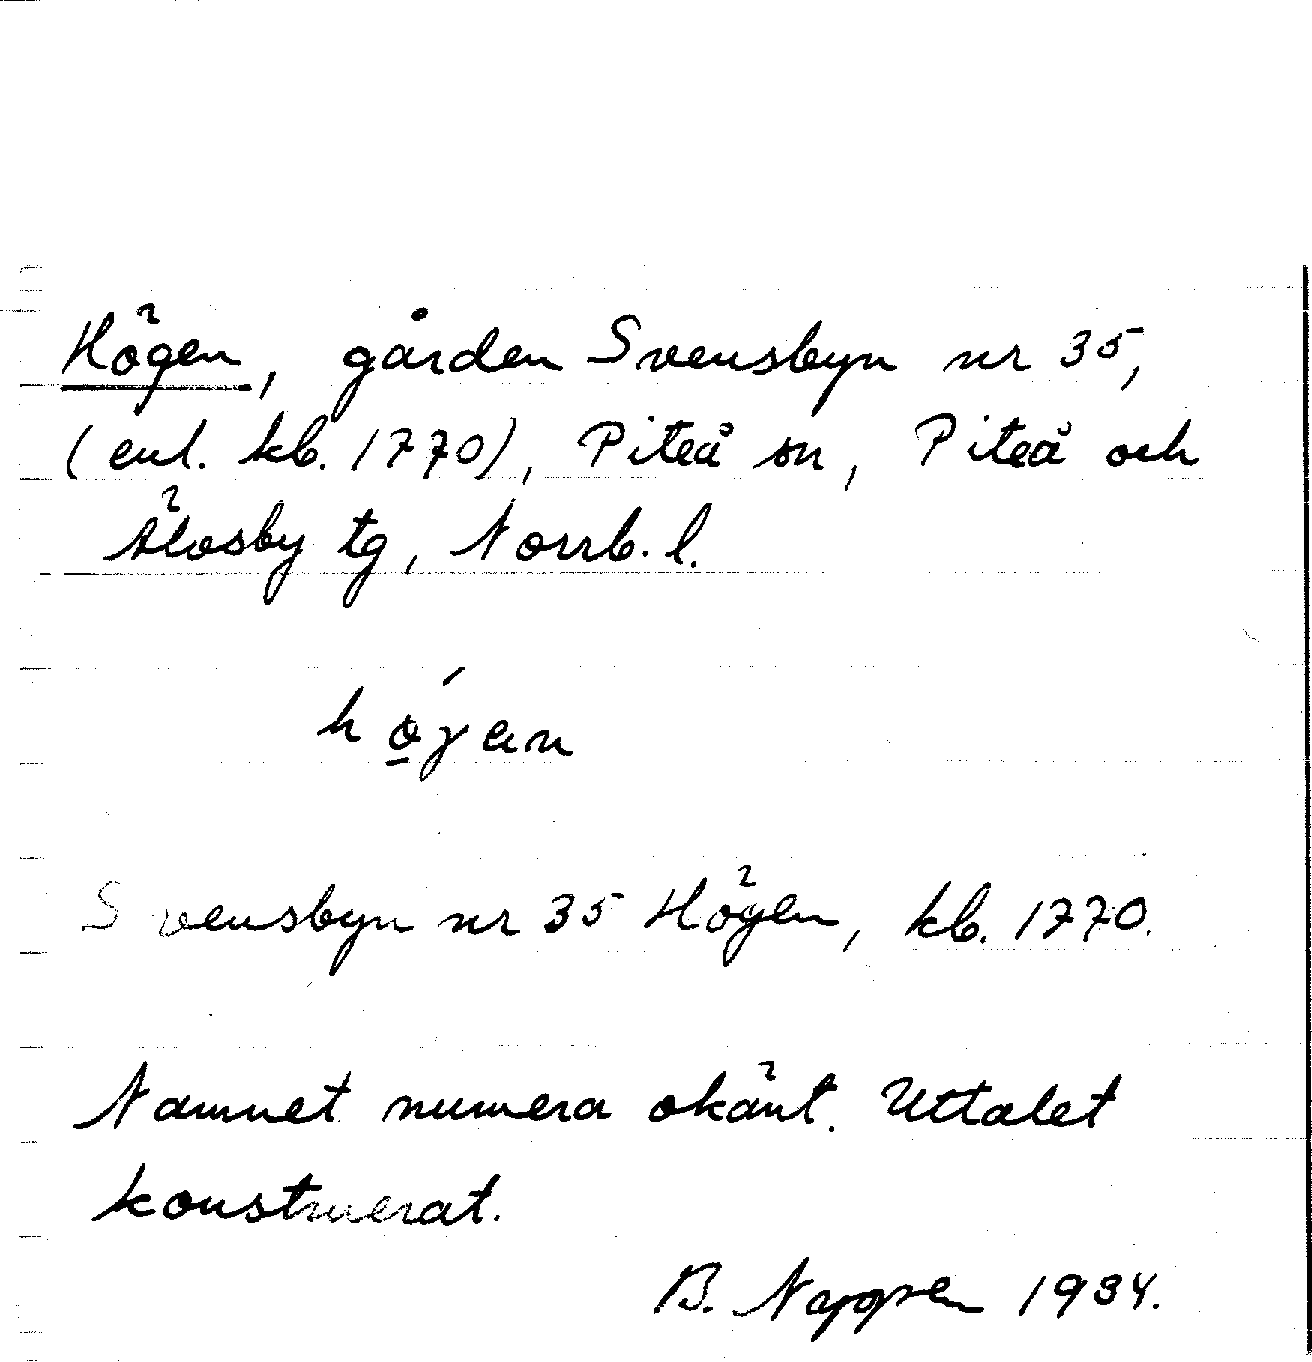 Högen, gården Svensbyn nr 35,
(enl. kb. 1770), Piteå sn, Piteå och
Älvsby tg, Norrb. l.
Svensbyn nr 35 Högen, kb. 1770.
Namnet numera okänt. Uttalet
konstruerat.
B. 1934.